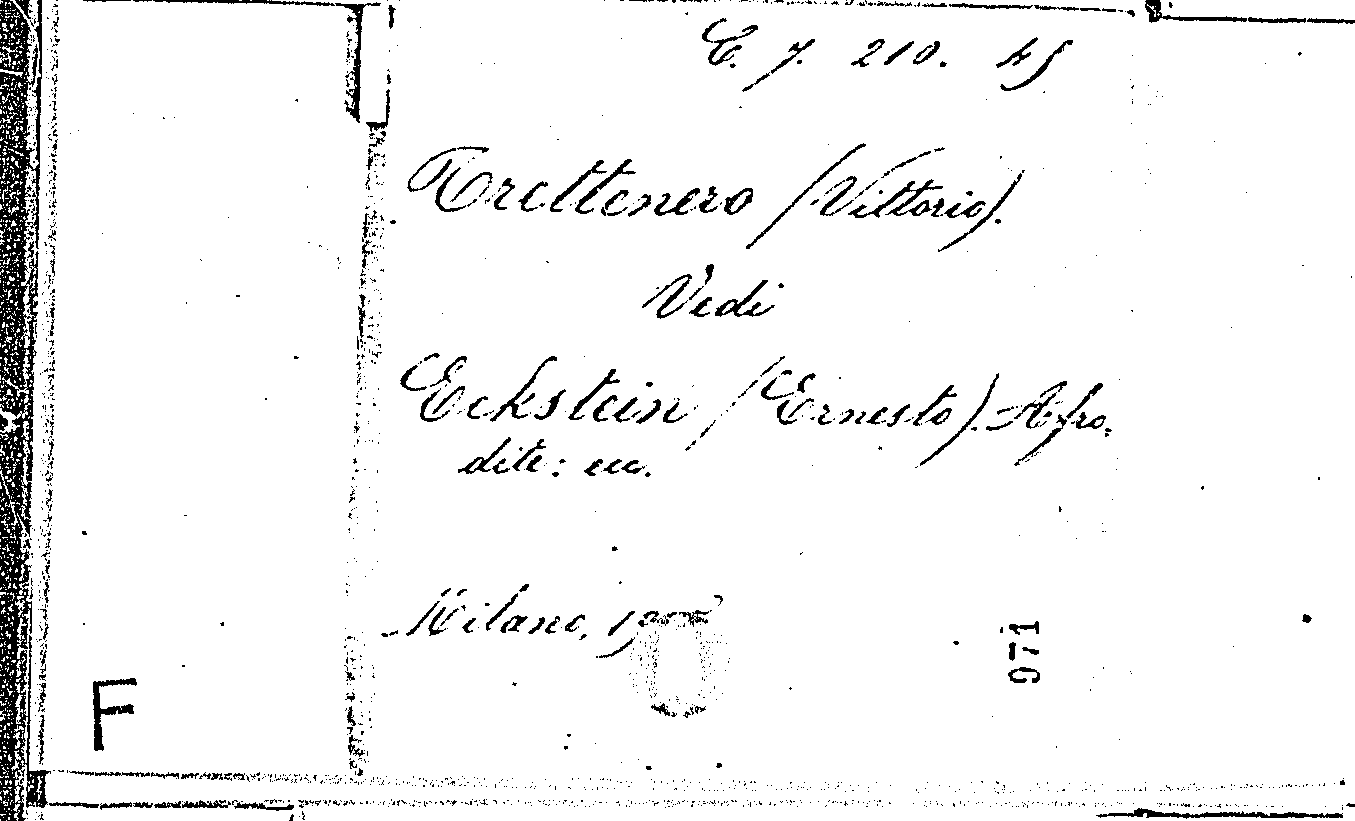 C. 7. 210. 45
Trettenero (Vittorio).
Vedi
Eckstein (Ernesto). Afro-
dite: ecc.
Milano,
971
F